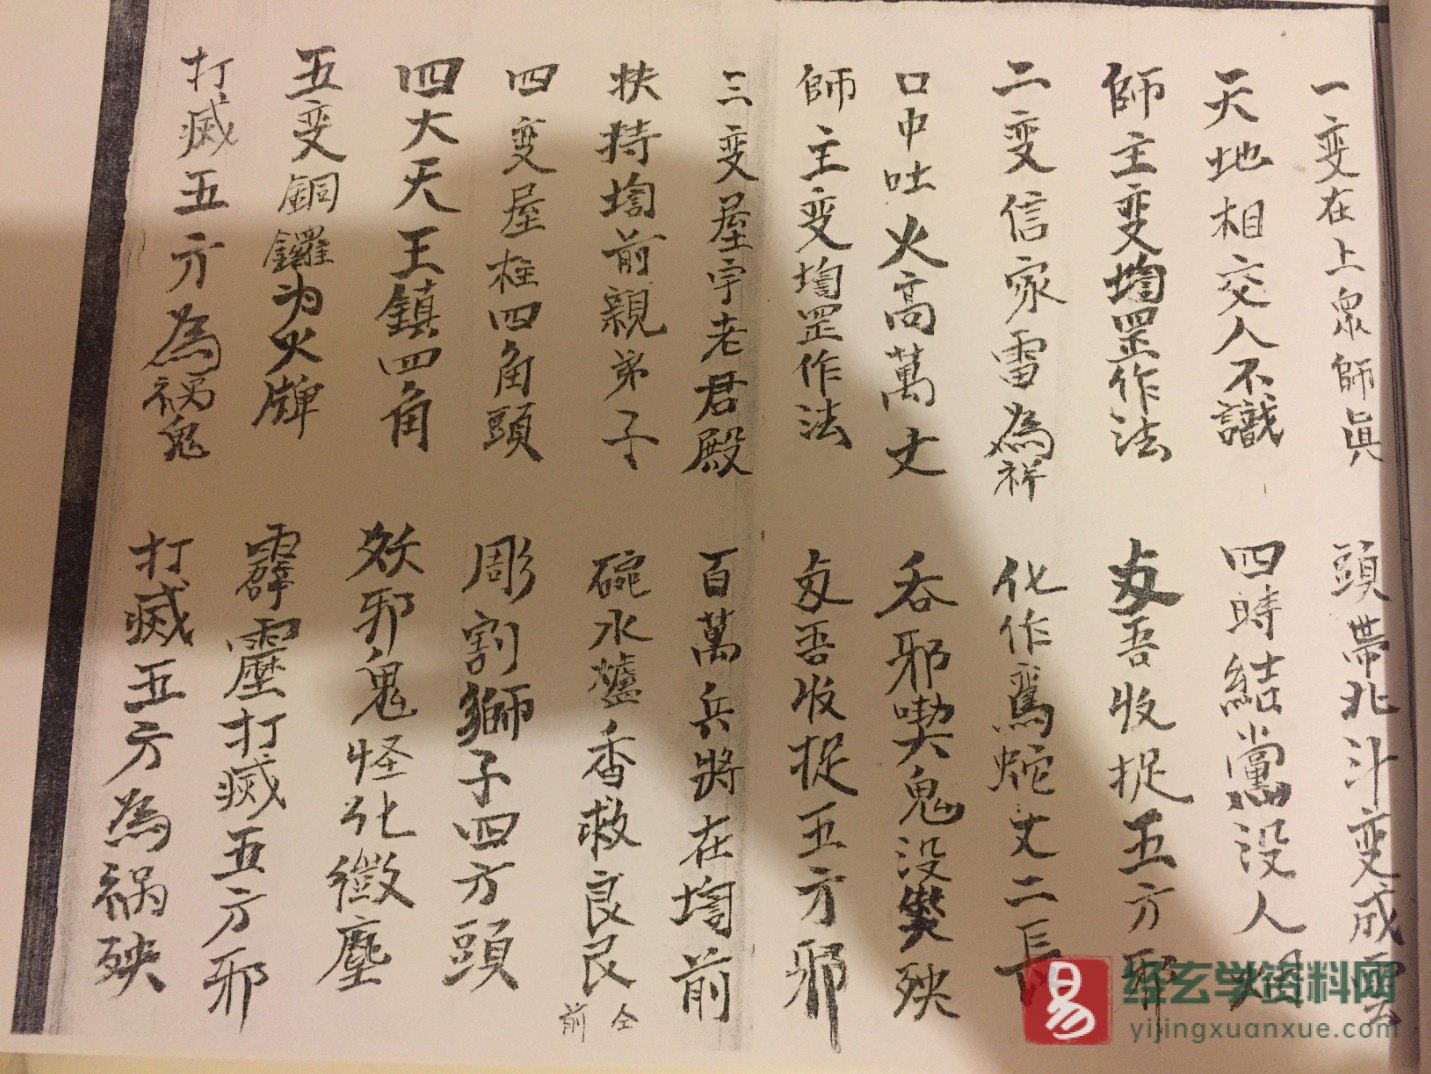 一变在上众師眞 頭帶北斗变成雲
天地相交人不識 四時結黨没人
師主变壇罡作法 交吾收捉五方邪
二变信家雷為祥 化作鳥蛇丈二長
口中吐火高萬丈 吞邪喫鬼没災殃
師主变罡作法 交吾收捉五方邪
三变屋宇老君殿 百萬兵將在前
扶持前親弟子 碗水爐香救良民
仝前
四变屋柱四角頭 彫割獅子四方頭
四大天王鎮四角 妖邪鬼怪化微塵
五变銅鑼为火牌 霹靂打滅五方邪
打滅五方為祸鬼 打滅五方為祸殃
易
经玄学资料网
yijingxuanxue.com